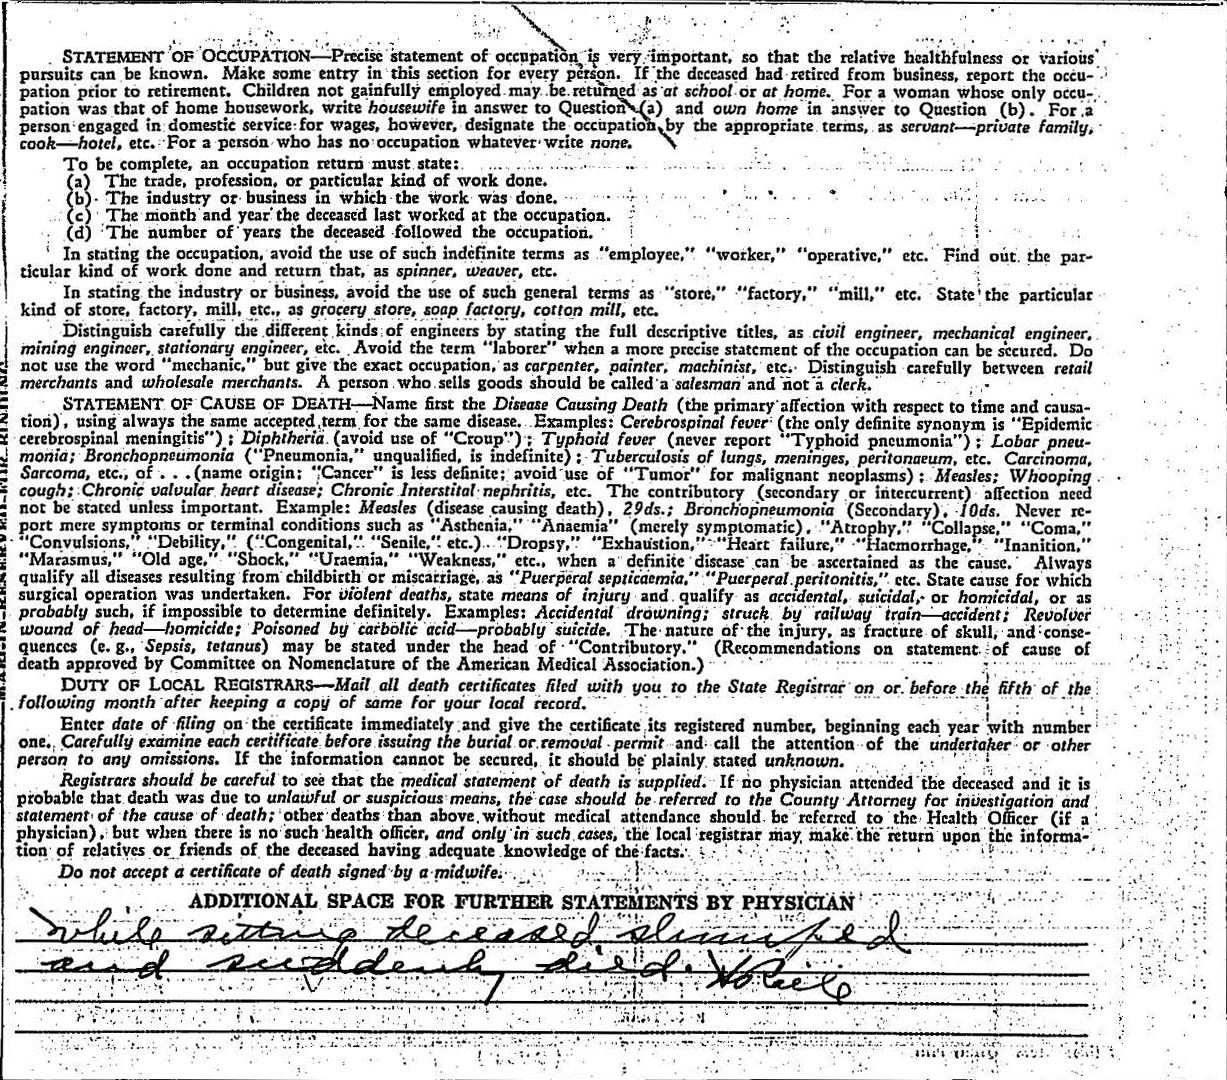 STATEMENT OF OCCUPATION—Precise statement of occupation is very important, so that the relative healthfulness or various
pursuits can be known. Make some entry in this section for every person. If the deceased had retired from business, report the occu-
pation prior to retirement. Children not gainfully employed may be returned as at school or at home. For a woman whose only occu-
pation was that of home housework, write housewife in answer to Question (a) and own home in answer to Question (b). For a
person engaged in domestic service for wages, however, designate the occupation by the appropriate terms, as servant—private family,
cook—hotel, etc. For a person who has no occupation whatever write none.
To be complete, an occupation return must state:
(a) The trade, profession, or particular kind of work done.
(b) The industry or business in which the work was done.
(c) The month and year the deceased last worked at the occupation.
(d) The number of years the deceased followed the occupation.
In stating the occupation, avoid the use of such indefinite terms as "employee," "worker," "operative," etc. Find out the par-
ticular kind of work done and return that, as spinner, weaver, etc.
In stating the industry or business, avoid the use of such general terms as "store," "factory," "mill," etc. State the particular
kind of store, factory, mill, etc., as grocery store, soap factory, cotton mill, etc.
Distinguish carefully the different kinds of engineers by stating the full descriptive titles, as civil engineer, mechanical engineer,
mining engineer, stationary engineer, etc. Avoid the term "laborer" when a more precise statement of the occupation can be secured. Do
not use the word "mechanic," but give the exact occupation, as carpenter, painter, machinist, etc. Distinguish carefully between retail
merchants and wholesale merchants. A person who sells goods should be called a salesman and not a clerk.
STATEMENT OF CAUSE OF DEATH—Name first the Disease Causing Death (the primary affection with respect to time and causa-
tion), using always the same accepted term for the same disease. Examples: Cerebrospinal fever (the only definite synonym is "Epidemic
cerebrospinal meningitis"); Diphtheria (avoid use of "Croup"); Typhoid fever (never report "Typhoid pneumonia"); Lobar pneu-
monia; Bronchopneumonia ("Pneumonia," unqualified, is indefinite); Tuberculosis of lungs, meninges, peritonaeum, etc. Carcinoma,
Sarcoma, etc., of . . . (name origin; "Cancer" is less definite; avoid use of "Tumor" for malignant neoplasms); Measles; Whooping
cough; Chronic valvular heart disease; Chronic Interstital nephritis, etc. The contributory (secondary or intercurrent) affection need
not be stated unless important. Example: Measles (disease causing death), 29ds.; Bronchopneumonia (Secondary), 10ds. Never re-
port mere symptoms or terminal conditions such as "Asthenia," "Anaemia" (merely symptomatic), "Atrophy," "Collapse," "Coma,"
"Convulsions," "Debility," ("Congenital," "Senile," etc.) "Dropsy," "Exhaustion," "Heart failure," "Haemorrhage," "Inanition,"
"Marasmus," "Old age," "Shock," "Uraemia," "Weakness," etc., when a definite disease can be ascertained as the cause. Always
qualify all diseases resulting from childbirth or miscarriage, as "Puerperal septicaemia," "Puerperal peritonitis," etc. State cause for which
surgical operation was undertaken. For violent deaths, state means of injury and qualify as accidental, suicidal, or homicidal, or as
probably such, if impossible to determine definitely. Examples: Accidental drowning; struck by railway train—accident; Revolver
wound of head—homicide; Poisoned by carbolic acid—probably suicide. The nature of the injury, as fracture of skull, and conse-
quences (e. g., Sepsis, tetanus) may be stated under the head of "Contributory." (Recommendations on statement of cause of
death approved by Committee on Nomenclature of the American Medical Association.)
DUTY OF LOCAL REGISTRARS—Mail all death certificates filed with you to the State Registrar on or before the fifth of the
following month after keeping a copy of same for your local record.
Enter date of filing on the certificate immediately and give the certificate its registered number, beginning each year with number
one. Carefully examine each certificate before issuing the burial or removal permit and call the attention of the undertaker or other
person to any omissions. If the information cannot be secured, it should be plainly stated unknown.
Registrars should be careful to see that the medical statement of death is supplied. If no physician attended the deceased and it is
probable that death was due to unlawful or suspicious means, the case should be referred to the County Attorney for investigation and
statement of the cause of death; other deaths than above without medical attendance should be referred to the Health Officer (if a
physician), but when there is no such health officer, and only in such cases, the local registrar may make the return upon the informa-
tion of relatives or friends of the deceased having adequate knowledge of the facts.
Do not accept a certificate of death signed by a midwife.
ADDITIONAL SPACE FOR FURTHER STATEMENTS BY PHYSICIAN
While sitting deceased slumped
and suddenly died.